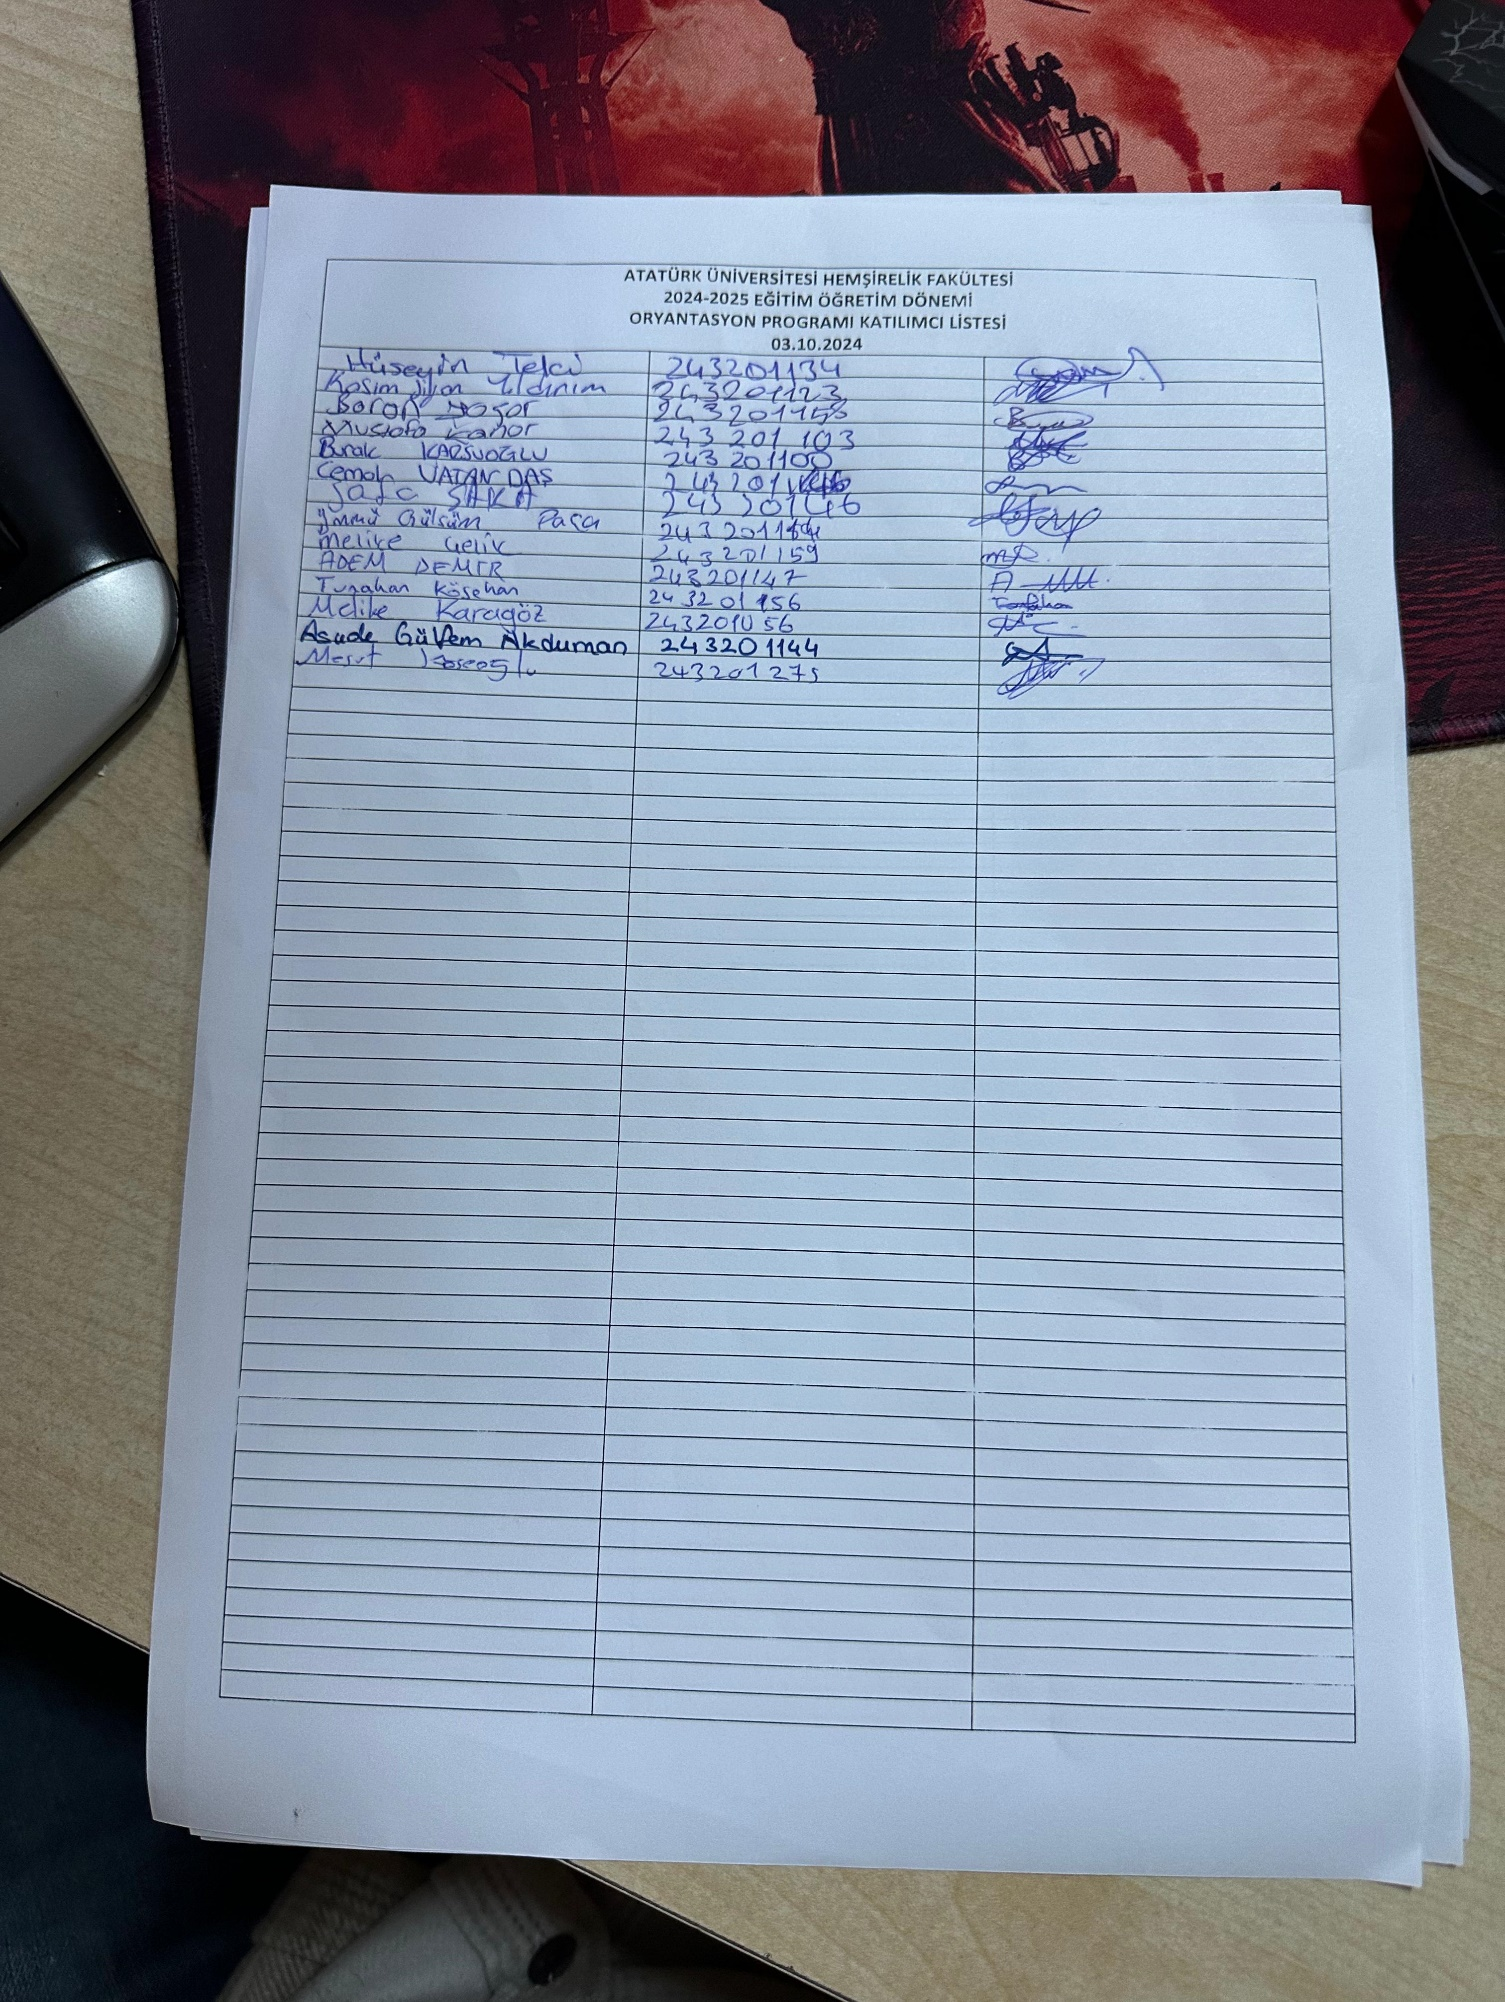 ATATÜRK ÜNİVERSİTESİ HEMŞİRELİK FAKÜLTESİ
2024-2025 EĞİTİM ÖĞRETİM DÖNEMİ
ORYANTASYON PROGRAMI KATILIMCI LİSTESİ
03.10.2024
Hüseyin Telci 243201134
Yıldırım 243201123
Baran Yaşar
Mustafa 243 201 103
Burak KARSUOĞLU 243 201100
Cemal VATAN DAŞ
SAKA 243 20146
Ümmü Gülsüm Paşa
Melike Çelik 243201159
ADEM DEMİR 243201147
Tunahan Kösehan 243201156
Melike Karagöz
Asude Gülfem Akduman 243201144
Mesut Köseoğlu 243201275